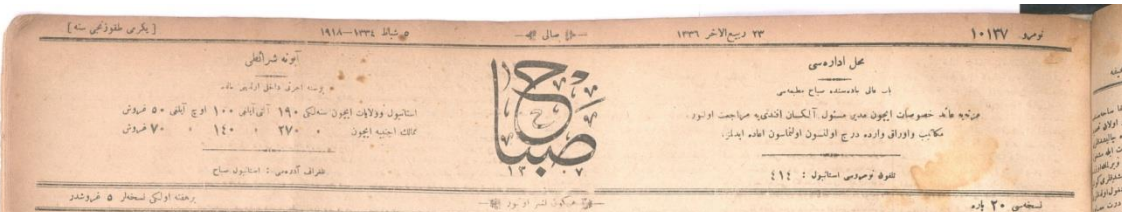 نومرو ١٠١٣٧
٢٣ ربيع الآخر ١٣٣٦
صالى
شباط ١٣٣٤—١٩١٨
[ يكرمى طقوزنجى سنه ]
محل اداره‌سى
باب عالى جاده‌سنده صباح مطبعه‌سى
خصوصات ايچون مدير مسئول آلكسان افندى‌يه مراجعت اولنور.
مكاتيب واوراق وارده درج اولنسون اولنماسون اعاده ايدلمز.
تلفون نومروسى استانبول : ٤١٤
صباح
١٣٠٧
آبونه شرائطى
پوسته اجرتى داخل
استانبول وولايات ايچون سنه‌لكى ١٩٠ آلتى آيلغى ١٠٠ اوچ آيلغى ٥٠ غروش
ممالك اجنبيه ايچون » ٢٧٠ » ١٤٠ » ٧٠ غروش
تلغراف آدره‌سى : استانبول صباح
نسخه‌سى ٢٠ پاره
هركون نشر اولنور
برهفته اولكى نسخه‌لر ٥ غروشدر